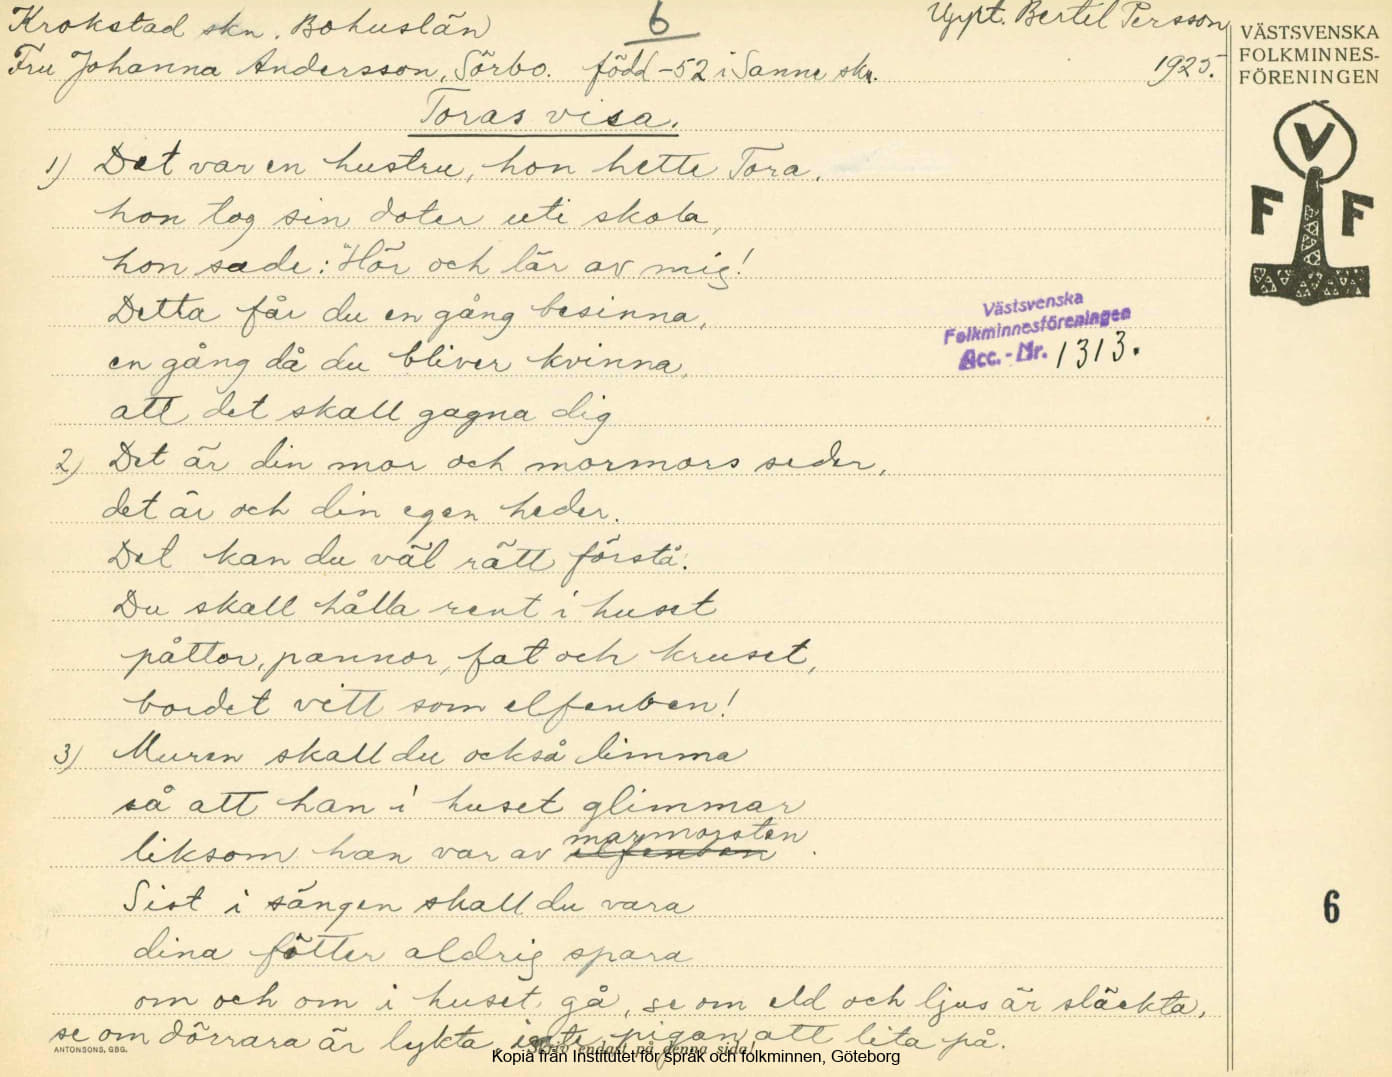 Krokstad skn. Bohuslän
6
Uppt. Bertel Persson
Fru Johanna Andersson, Sörbo. född -52 i Sanne skn.
1925.
Toras visa.
1) Det var en hustru, hon hette Tora,
hon tog sin doter uti skola,
hon sade: "Hör och lär av mig!
Detta får du en gång besinna,
en gång då du bliver kvinna,
att det skall gagna dig
2) Det är din mor och mormors seder,
det är och din egen heder.
Det kan du väl rätt förstå:
Du skall hålla rent i huset
påttor, pannor, fat och kruset,
bordet vitt som elfenben!
3) Muren skall du också limma
så att han i huset glimmar
marmorsten
liksom han var av elfenben.
Sist i sängen skall du vara
dina fötter aldrig spara
om och om i huset gå, se om eld och ljus är släckta,
se om dörrara är lykta, inte pigan att lita på.
ANTONSONS, GBG.
Skriv endast på denna sida!
Kopia från Institutet för språk och folkminnen, Göteborg
VÄSTSVENSKA
FOLKMINNES-
FÖRENINGEN
V
F F
Västsvenska
Folkminnesföreningen
Acc.-Nr. 1313.
6